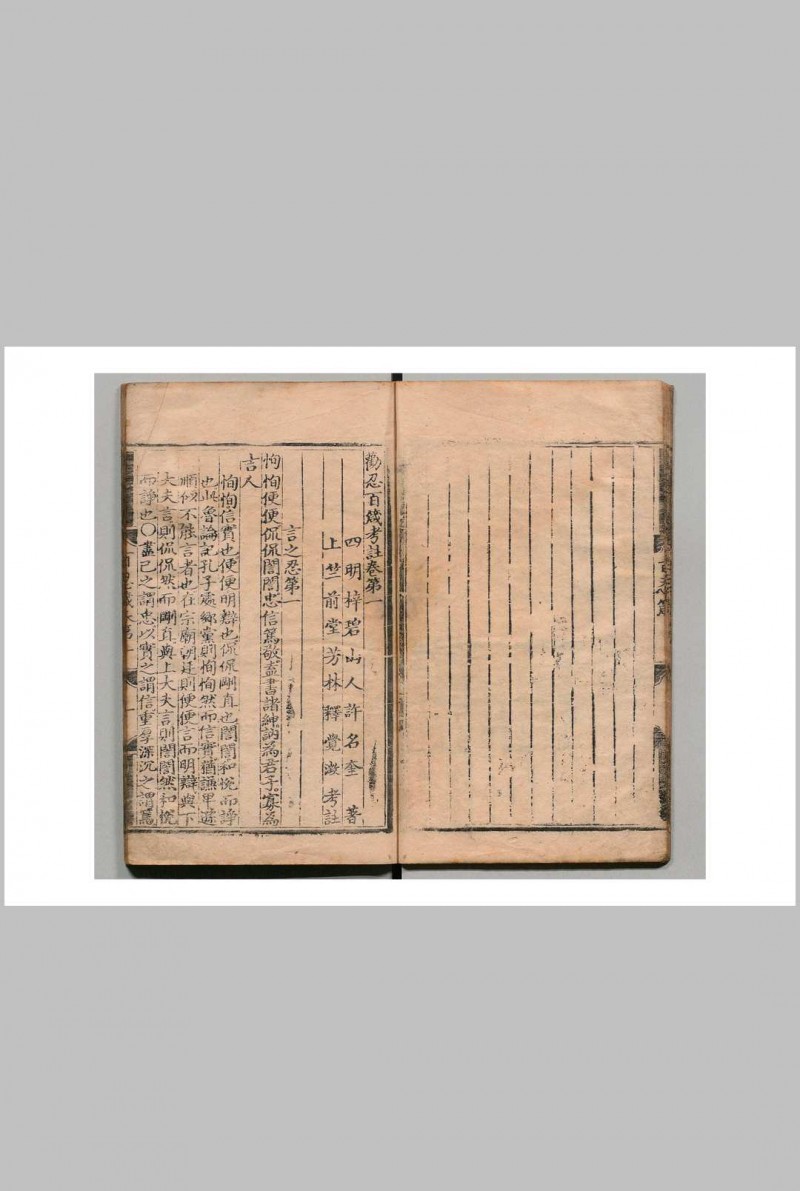 勸忍百箴考註卷第一
四明梓碧山人許名奎著
上竺前堂芳林釋覺澂考註
言之忍第一
恂恂便便侃侃誾誾忠信篤敬盍書諸紳訥為君子寡為
吉人
恂恂信實也便便明辯也侃侃剛直也誾誾和悅而諍
也此魯論記孔子處鄉黨則恂恂然而信實猶謙卑遜
順似不能言者也在宗廟朝廷則便便言而明辯與下
大夫言則侃侃然而剛直與上大夫言則誾誾然和悅
而諍也〇盡己之謂忠以實之謂信重厚深沉之謂篤